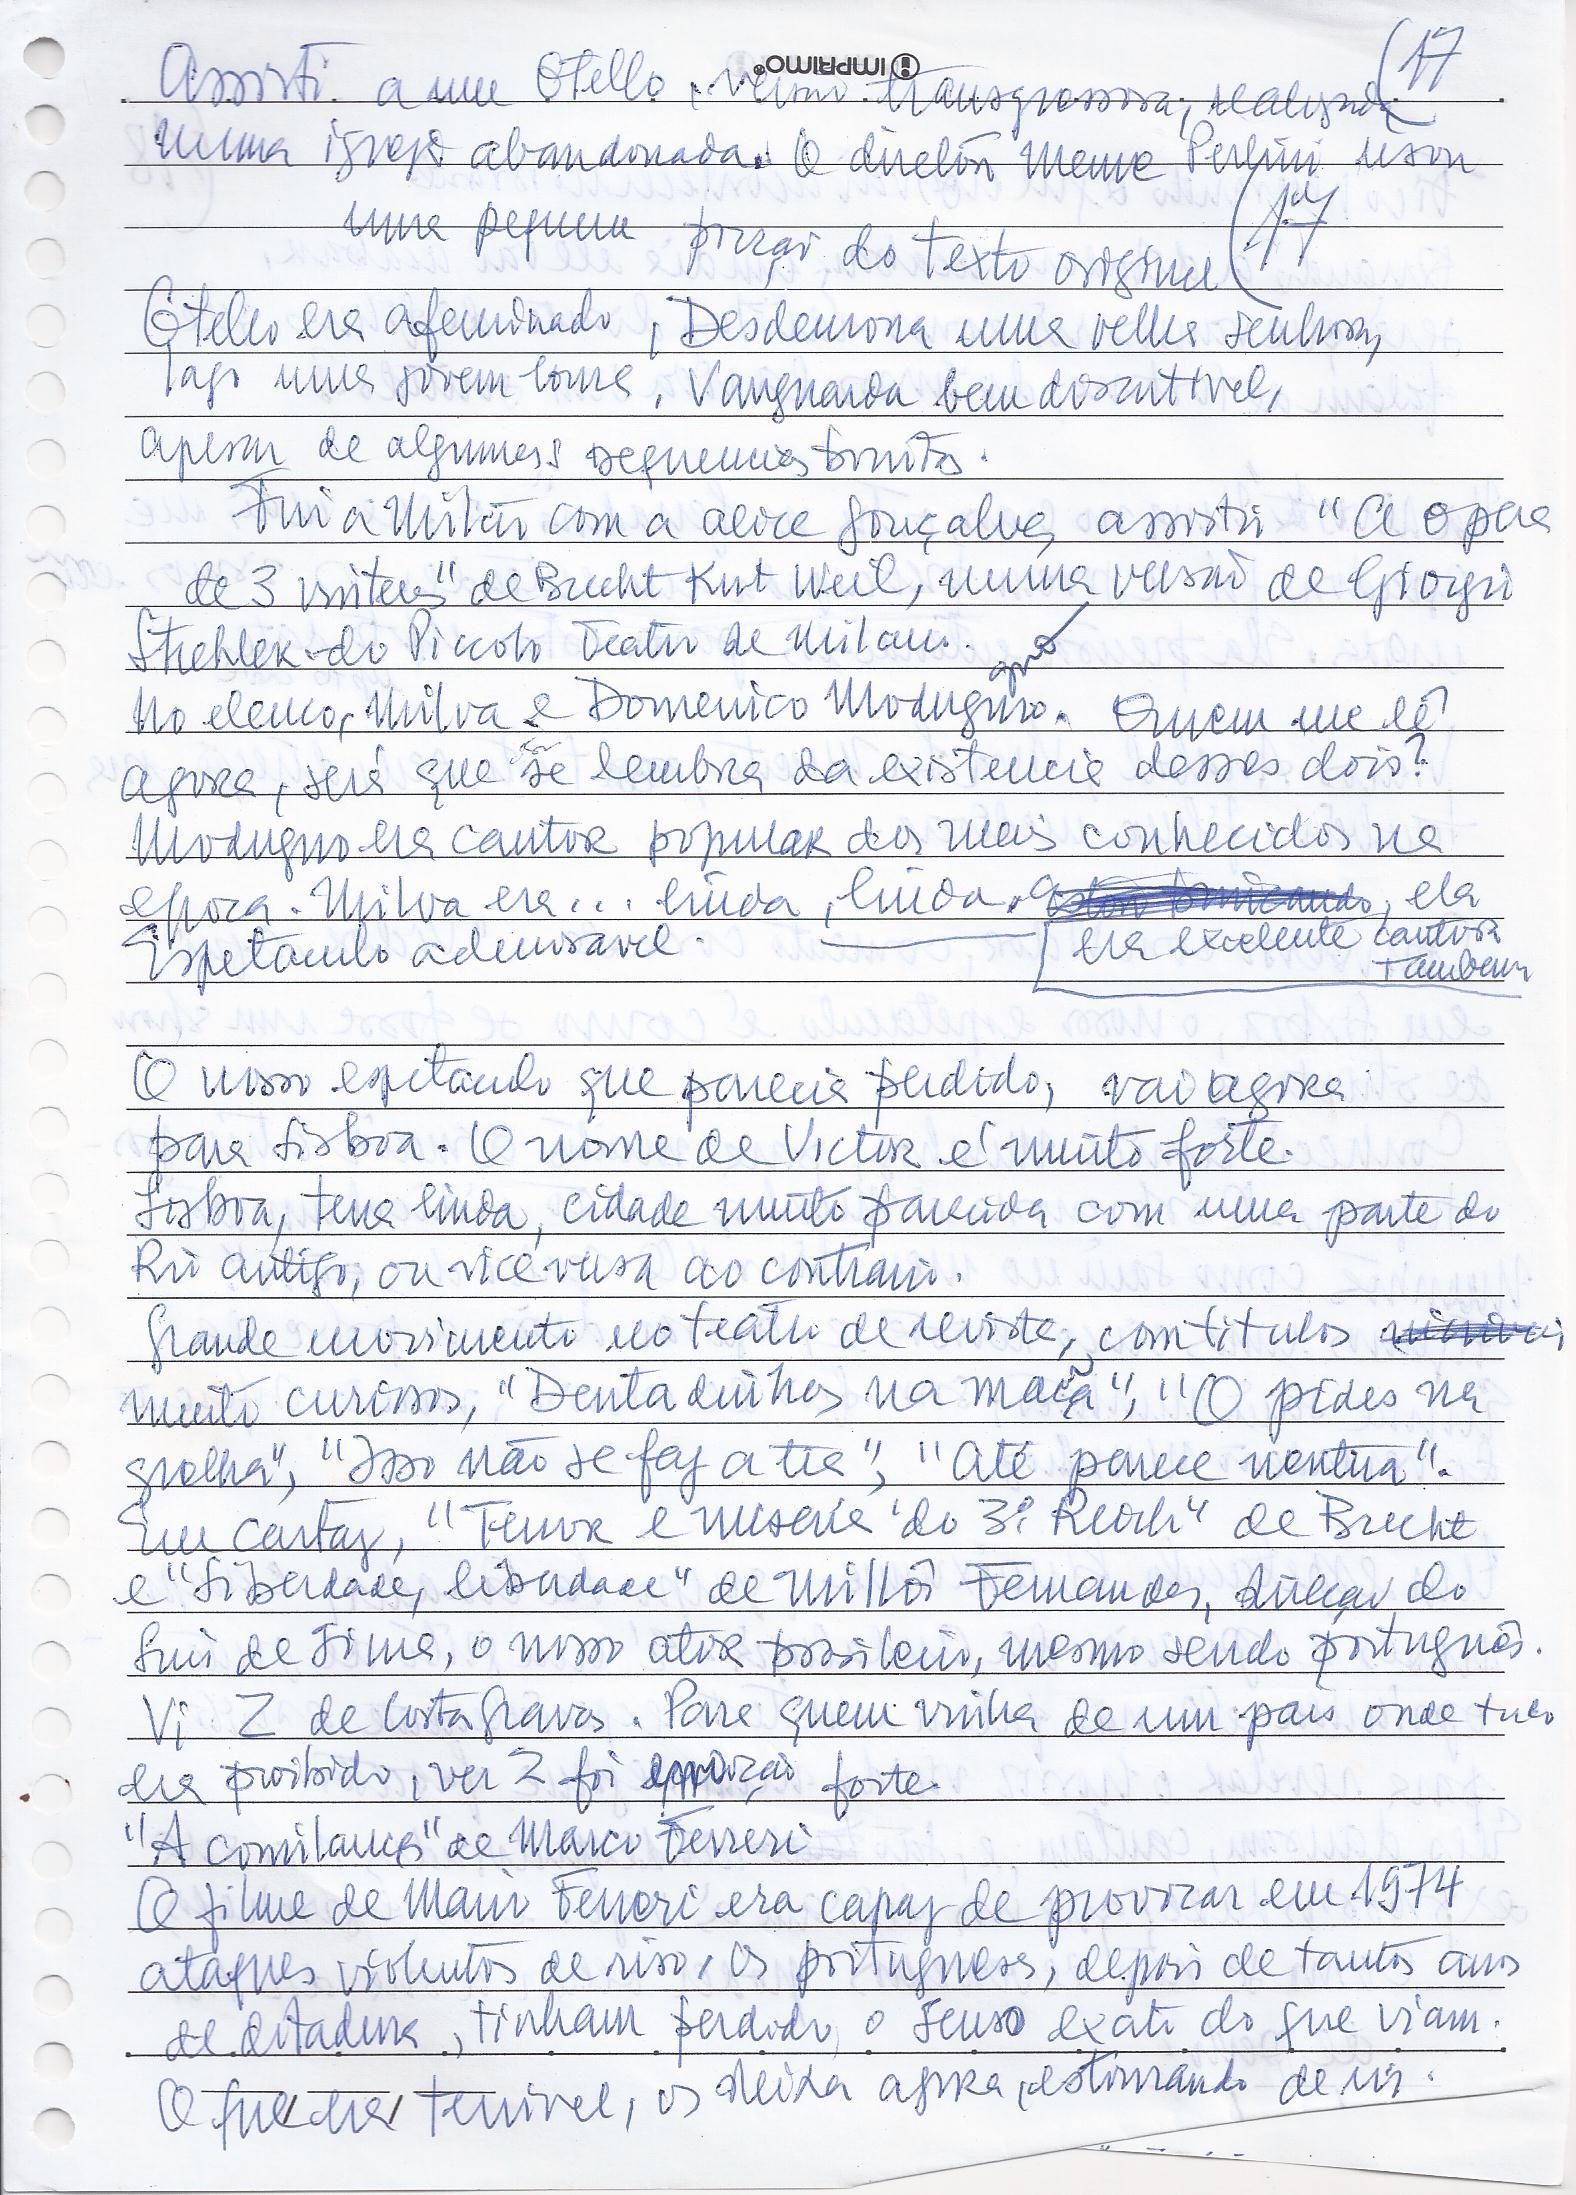 IMPRIMO
(17
Assisti a um Otello, versão transgressora, realizada
numa igreja abandonada. O diretor Meme Perlini usou
uma pequena porção do texto original (17
Otello era afeminado, Desdemona uma velha senhora,
Iago uma jovem loura. Vanguarda bem discutivel,
apesar de algumas sequencias bonitas.
Fui a Milão com a Alice Gonçalves, assistir "A opera
de 3 vintens" de Brecht Kurt Weil, numa versão de Giorgio
Strehler do Piccolo Teatro de Milano.
No elenco, Milva e Domenico Modugno. Quem me lê
agora, será que se lembra da existencia desses dois?
Modugno era cantor popular dos mais conhecidos na
epoca. Milva era... linda, linda, ela
era excelente cantora
tambem
Espetaculo admiravel.
O nosso espetaculo que parecia perdido, vai agora
para Lisboa. O nome de Victor é muito forte.
Lisboa, terra linda, cidade muito parecida com uma parte do
Rio antigo, ou vice versa ao contrario.
Grande movimento no teatro de revista, com titulos
muito curiosos, "Dentadinhas na maçã", "O pides na
grelha", "Isso não se faz a tia", "Até parece mentira".
Em cartaz, "Terror e miseria do 3º Reich" de Brecht
e "Liberdade, liberdade" de Millôr Fernandes, direção do
Luis de Lima, o nosso ator brasileiro, mesmo sendo português.
Vi Z de Costa Gravas. Para quem vinha de um pais onde tudo
era proibido, ver Z foi emoção forte.
"A comilança" de Marco Ferreri
O filme de Mario Ferreri era capaz de provocar em 1974
ataques violentos de riso, os portugueses, depois de tantos anos
de ditadura, tinham perdido o senso exato do que viam.
O que era terrivel, os deixa agora, estourando de rir.